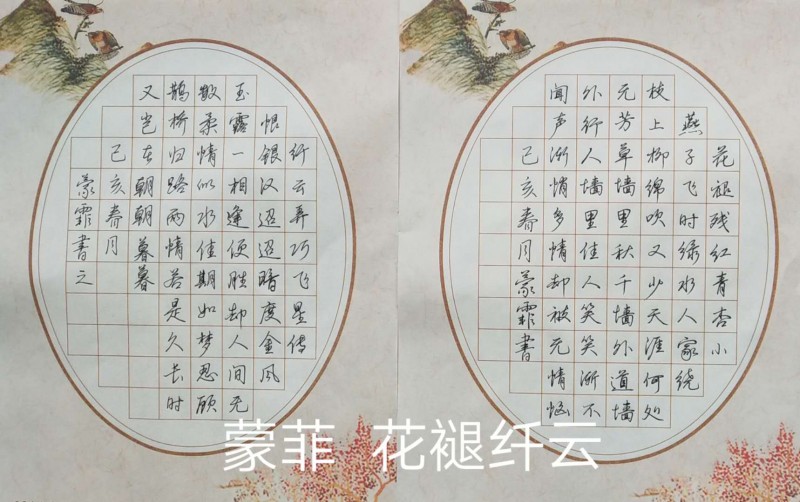 花褪残红青杏小
燕子飞时绿水人家绕
枝上柳绵吹又少天涯何处
无芳草墙里秋千墙外道墙
外行人墙里佳人笑笑渐不
闻声渐悄多情却被无情恼
己亥春月蒙霏書
纤云弄巧飞星传
恨银汉迢迢暗度金风
玉露一相逢便胜却人间无
数柔情似水佳期如梦忍顾
鹊桥归路两情若是久长时
又岂在朝朝暮暮
己亥春月
蒙霏書之
蒙菲 花褪纤云